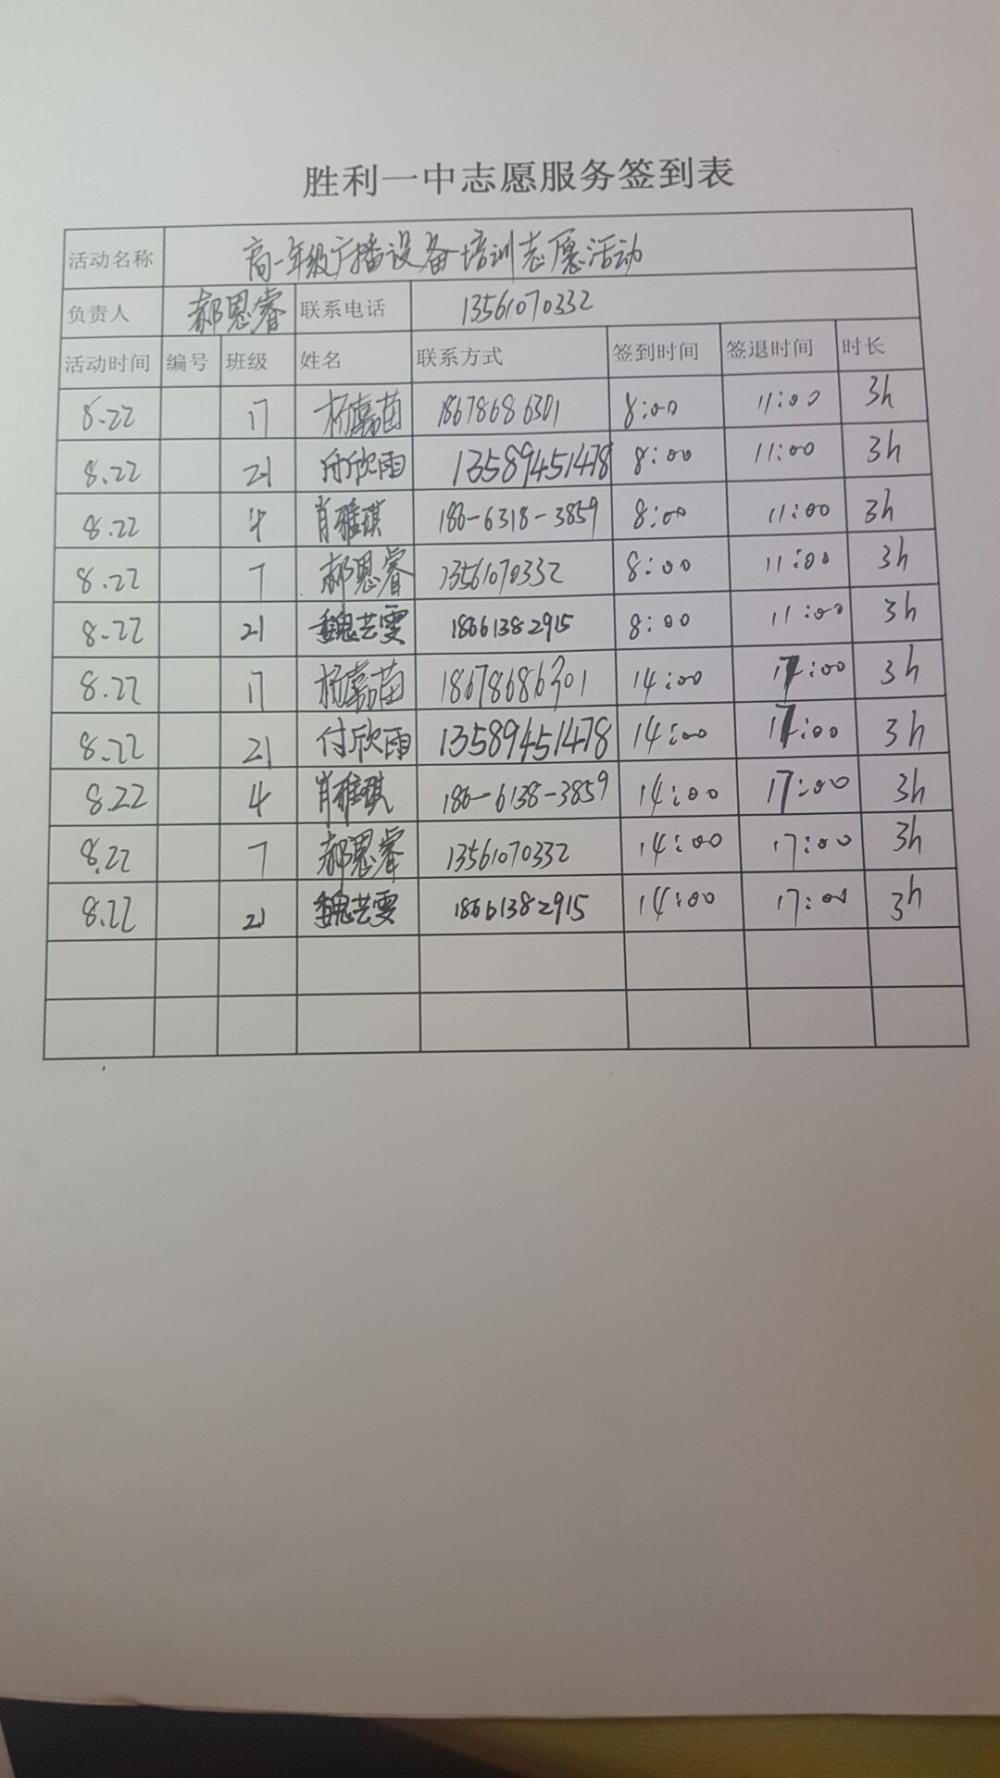 胜利一中志愿服务签到表
活动名称 高一年级广播设备培训志愿活动
负责人 郝恩睿 联系电话 13561070332
活动时间 编号 班级 姓名 联系方式 签到时间 签退时间 时长
8.22 17 杨嘉苗 18678686301 8:00 11:00 3h
8.22 21 付欣雨 13589451478 8:00 11:00 3h
8.22 4 肖雅琪 186-6318-3859 8:00 11:00 3h
8.22 7 郝恩睿 13561070332 8:00 11:00 3h
8.22 21 魏芸雯 18661382915 8:00 11:00 3h
8.22 17 杨嘉苗 18678686301 14:00 17:00 3h
8.22 21 付欣雨 13589451478 14:00 17:00 3h
8.22 4 肖雅琪 186-6138-3859 14:00 17:00 3h
8.22 7 郝恩睿 13561070332 14:00 17:00 3h
8.22 21 魏芸雯 18661382915 14:00 17:00 3h